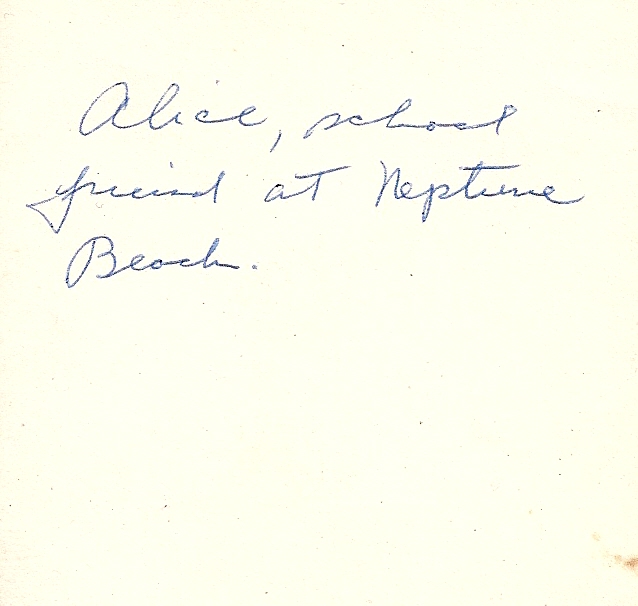 Alice, school
friend at Neptune
Beach.